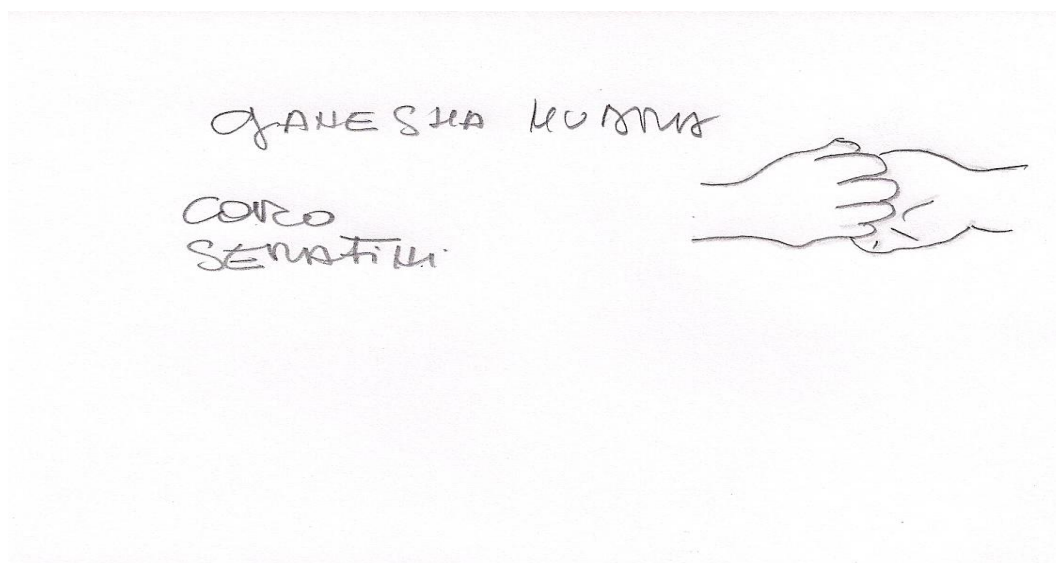 GANESHA MUDRA
CORO
SERAFiNi